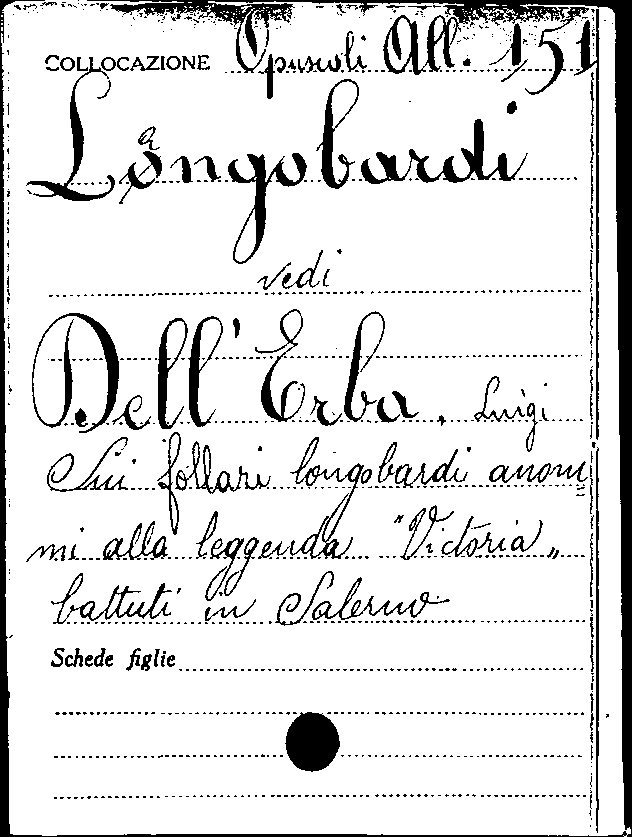 COLLOCAZIONE Opuscoli All. 151
Longobardi
vedi
Dell'Erba, Luigi
Sui follari longobardi anoni=
mi alla leggenda "Victoria„
battuti in Salerno
Schede figlie